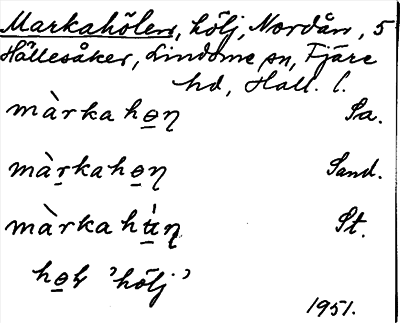 Markahölen, hölj, Nordån, 5
Hällesåker, Lindome sn, Fjäre
hd, Hall. l.
màrkahɵ̱ɳ Sa.
màṟkahɵ̱ɳ Sand.
màrkahu̱̇ɳ St.
'hölj'
1951.